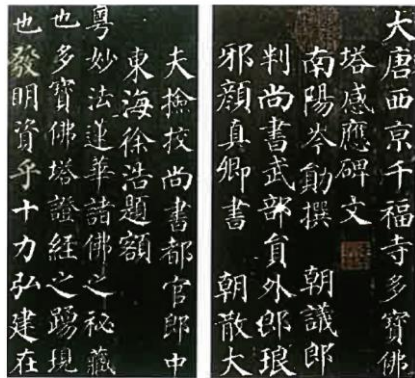 大唐西京千福寺多寶佛
塔感應碑文
南陽岑勛撰 朝議郎
判尚書武部貟外郎琅
邪顏真卿書 朝散大
夫撿挍尚書都官郎中
東海徐浩題額
粵妙法蓮華諸佛之秘藏
也多寶佛塔證經之踴現
也發明資乎十力弘建在